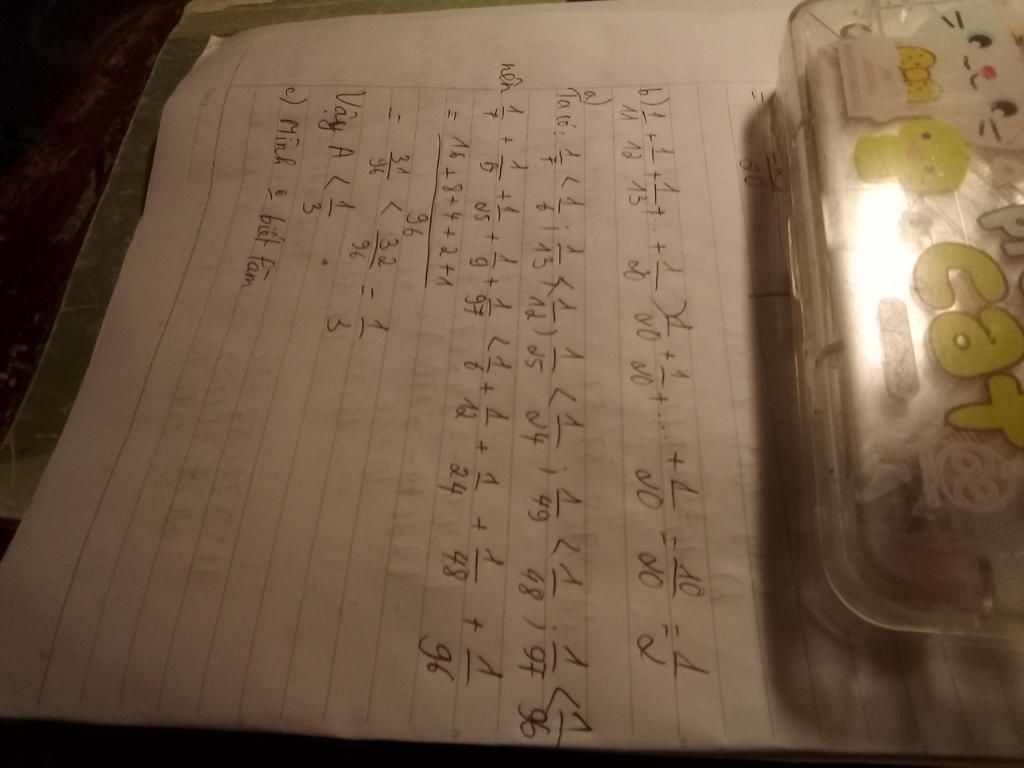 = -x/20
b) 1/11 + 1/12 + 1/13 + .. + 1/20 > 1/20 + 1/20 + ... + 1/20 = 10/20 = 1/2
a)
Ta có: 1/7 < 1/6 ; 1/13 < 1/12 ; 1/25 < 1/24 ; 1/49 < 1/48 ; 1/97 < 1/96
nên 1/7 + 1/13 + 1/25 + 1/49 + 1/97 < 1/6 + 1/12 + 1/24 + 1/48 + 1/96
= 16 + 8 + 4 + 2 + 1 / 96
= 31/96 < 32/96 = 1/3
Vậy A < 1/3
c) Mình biết làm